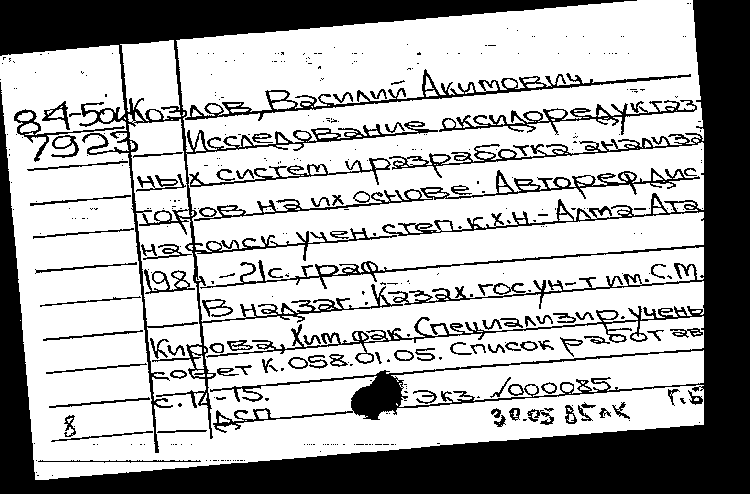 84-50к Козлов, Василий Акимович.
7923 Исследование оксидоредуктаз-
ных систем и разработка анализа
торов на их основе: Автореф. дис.
на соиск. учен. степ. к.х.н.-Алма-Ата,
1984.-21с., граф.
В надзаг.: Казах. гос. ун-т им. С.М.
Кирова, Хим. фак., Специализир. учены
совет К.058.01.05. Список работ ав
с. 14-15.
ДСП
Экз. √000085.
8
30.05 85 лк
г.Б